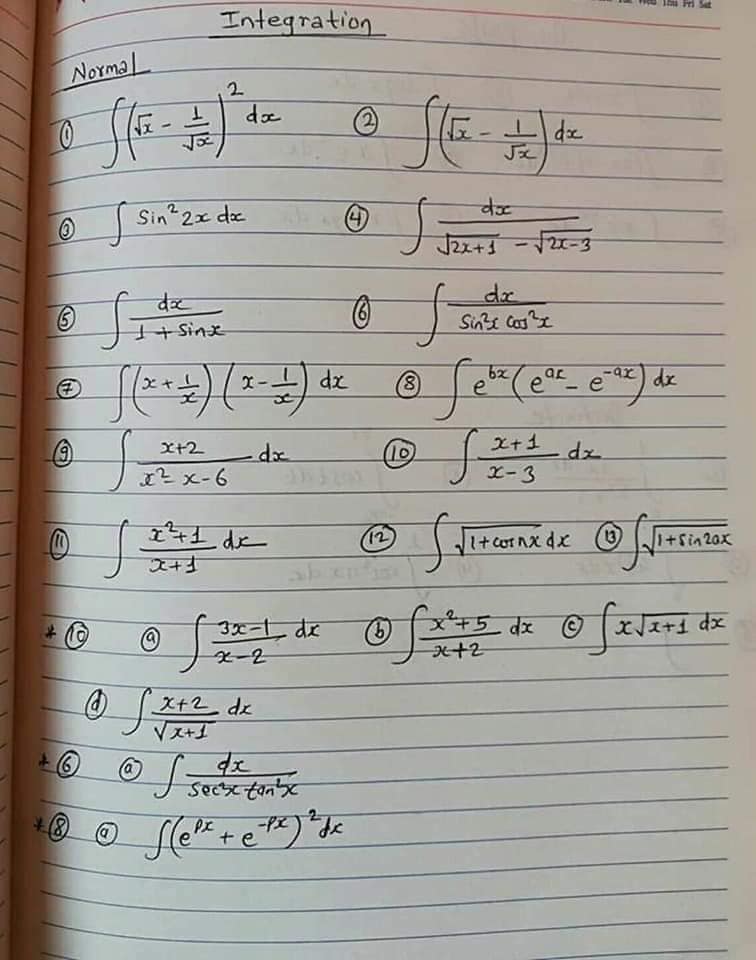 Wed Thu Fri Sat
Integration
Normal
① ∫(√x - 1/√x)² dx ② ∫(√x - 1/√x) dx
③ ∫ Sin² 2x dx ④ ∫ dx/(√(2x+1) - √(2x-3))
⑤ ∫ dx/(1 + Sinx) ⑥ ∫ dx/(Sin²x Cos²x)
⑦ ∫(x + 1/x)(x - 1/x) dx ⑧ ∫ e^(bx)(e^(ax) - e^(-ax)) dx
⑨ ∫ (x+2)/(x² - x-6) dx ⑩ ∫ (x+1)/(x-3) dx
⑪ ∫ (x²+1)/(x+1) dx ⑫ ∫ √(1+cosnx) dx ⑬ ∫√(1+Sin2ax)
* ⑩ ⓐ ∫ (3x-1)/(x-2) dx ⓑ ∫ (x²+5)/(x+2) dx ⓒ ∫ x√(x+1) dx
ⓓ ∫ (x+2)/√(x+1) dx
* ⑥ ⓐ ∫ dx/(Sec²x tan²x)
* ⑧ ⓐ ∫(e^(px) + e^(-px))² dx